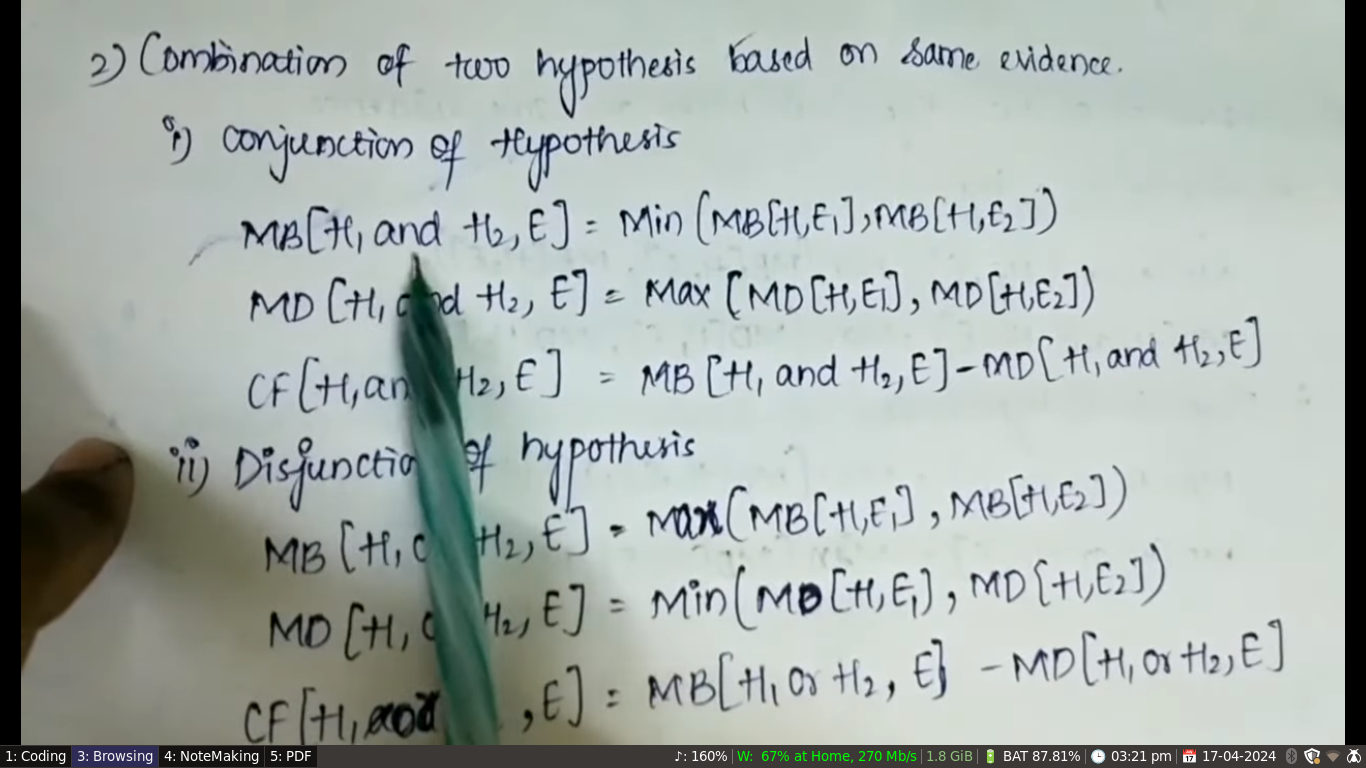 2) Combination of two hypothesis based on same evidence.
i) Conjunction of Hypothesis
MB[H₁ and H₂, E] = Min (MB[H,E₁], MB[H,E₂])
MD [H, H₂, E] = Max (MD[H,E₁], MD[H,E₂])
CF[H, H₂, E] = MB [H, and H₂, E] - MD[H, and H₂, E]
ii) of hypothesis
MB [H, H₂, E] = Max (MB[H,E₁], MB[H,E₂])
MD [H, H₂, E] = Min (MD[H,E₁], MD[H,E₂])
CF[H, , E] = MB[H₁ or H₂, E] - MD[H, or H₂, E]
1: Coding 3: Browsing 4: NoteMaking 5: PDF ♪: 160% W: 67% at Home, 270 Mb/s 1.8 GiB BAT 87.81% 03:21 pm 17-04-2024